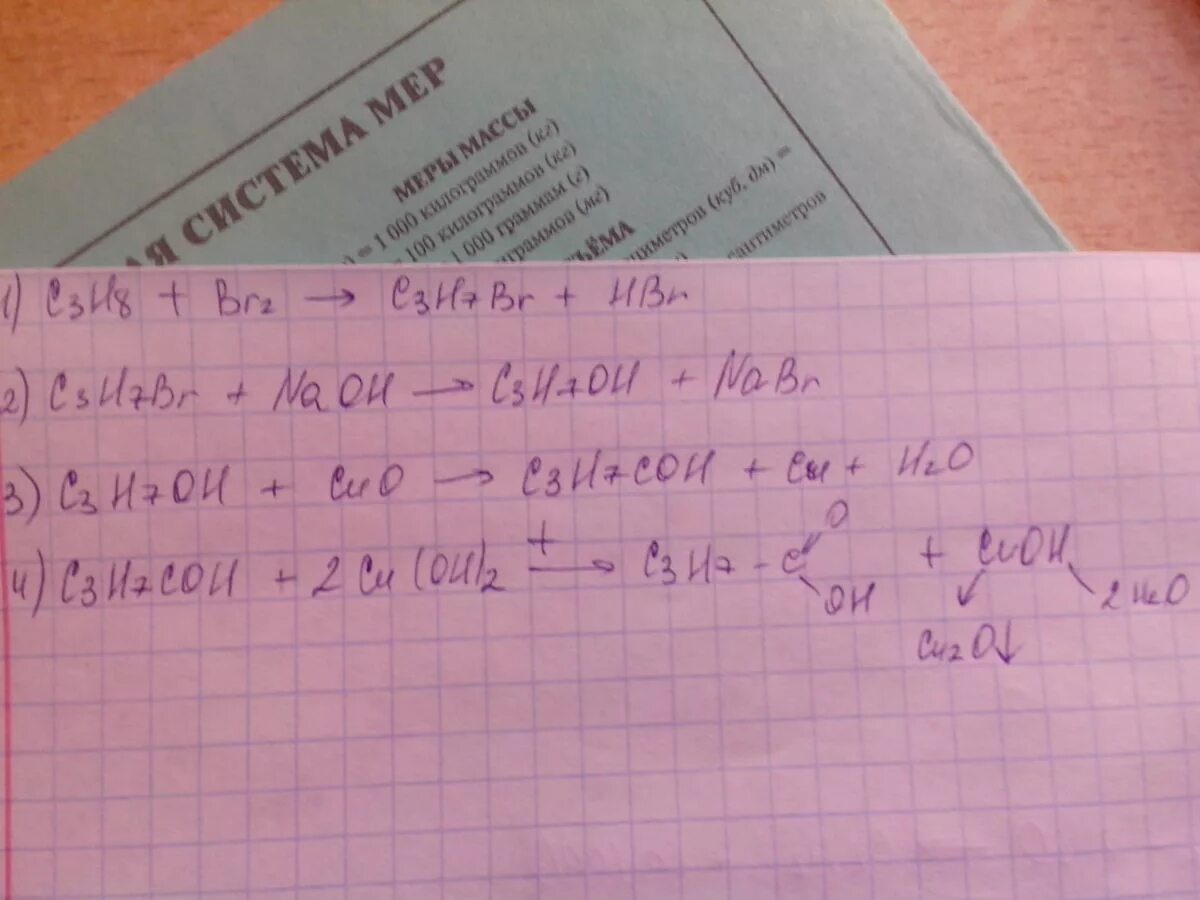 АЯ СИСТЕМА МЕР
МЕРЫ МАССЫ
) = 1 000 килограммов (кг)
= 100 килограммов (кг)
1 000 граммам (г)
играммов (мг)
ЪЁМА
циметров (куб. дм) =
сантиметров
1) C3H8 + Br2 → C3H7Br + HBr
2) C3H7Br + NaOH → C3H7OH + NaBr
3) C3H7OH + CuO → C3H7COH + Cu + H2O
4) C3H7COH + 2Cu(OH)2 →+ C3H7-C=O OH + CuOH
Cu2O↓ 2H2O